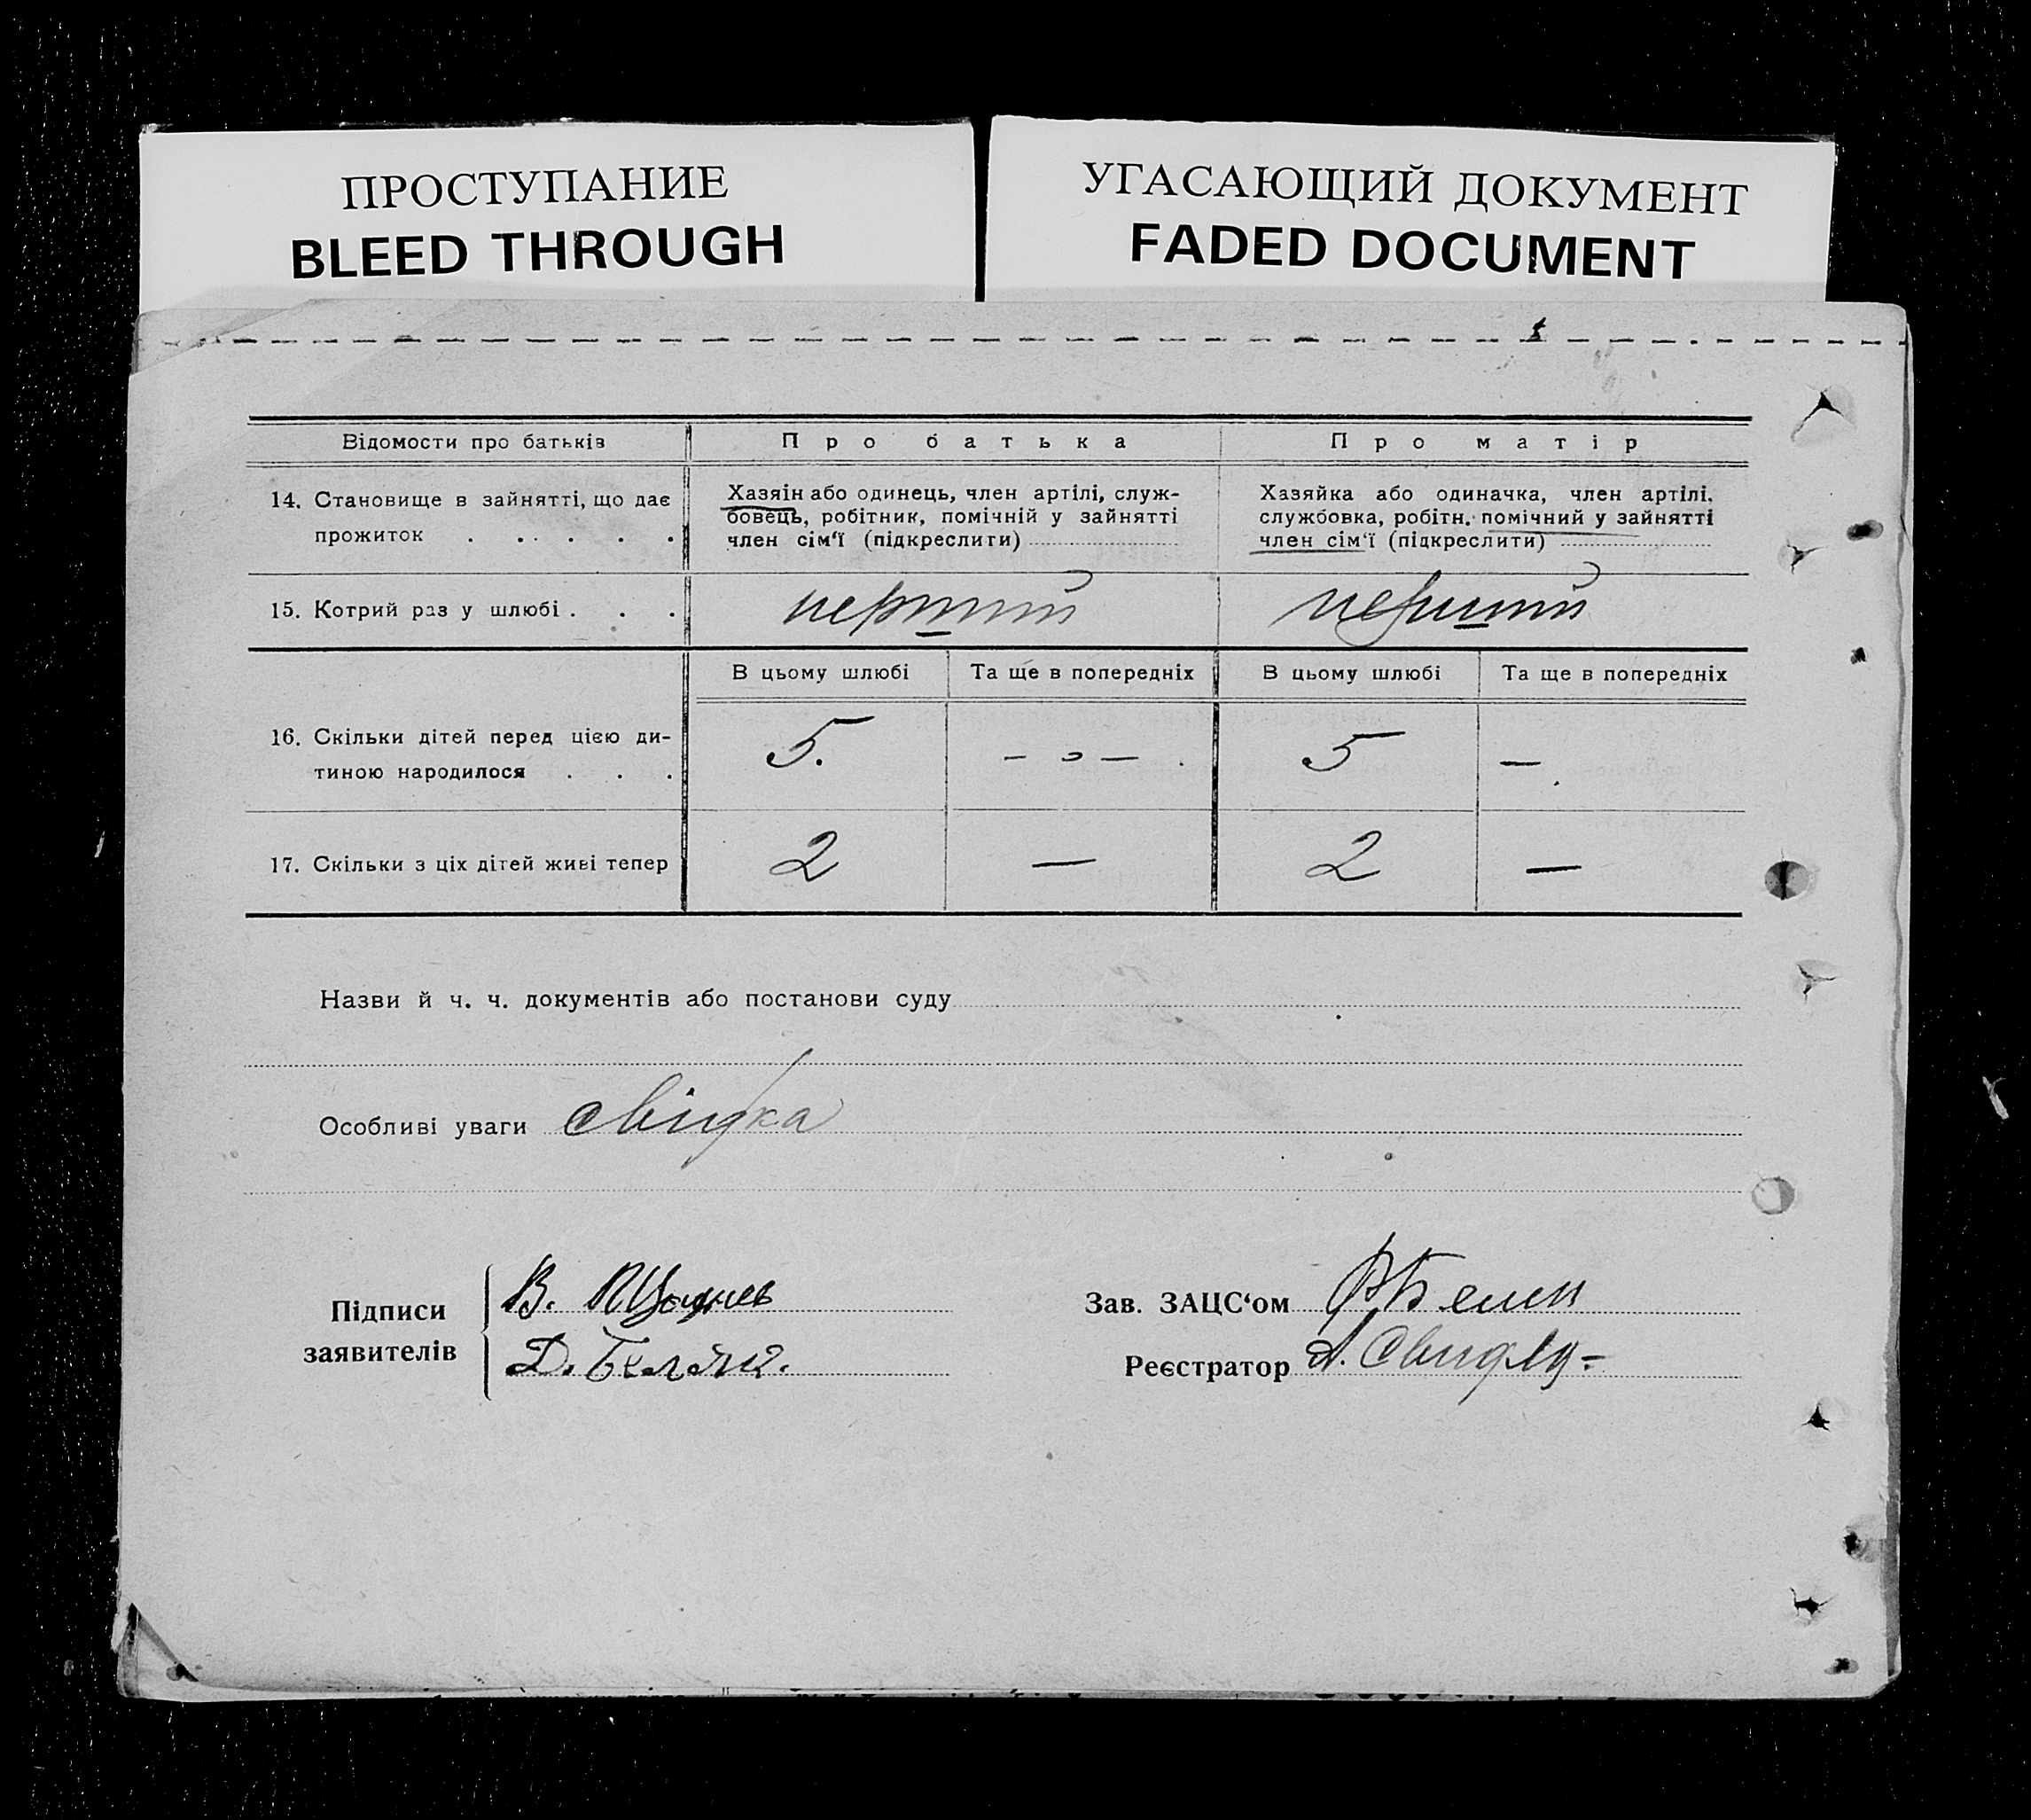 ПРОСТУПАНИЕ
BLEED THROUGH
УГАСАЮЩИЙ ДОКУМЕНТ
FADED DOCUMENT
Відомости про батьків
Про батька
Про матір
14. Становище в зайнятті, що дає
прожиток . . . . . .
Хазяін або одинець, член артілі, служ-
бовець, робітник, помічній у зайнятті
член сім'ї (підкреслити)
Хазяйка або одиначка, член артілі,
службовка, робітн. помічний у зайнятті
член сім'ї (підкреслити)
15. Котрий раз у шлюбі . . .
перший
перший
В цьому шлюбі
Та ще в попередніх
В цьому шлюбі
Та ще в попередніх
16. Скільки дітей перед цією ди-
тиною народилося . . .
5.
— о —
5
—
17. Скільки з ціх дітей живі тепер
2
—
2
—
Назви й ч. ч. документів або постанови суду
Особливі уваги свідка
Підписи
заявителів
В.
Д.
Зав. ЗАЦС'ом
Реєстратор А.